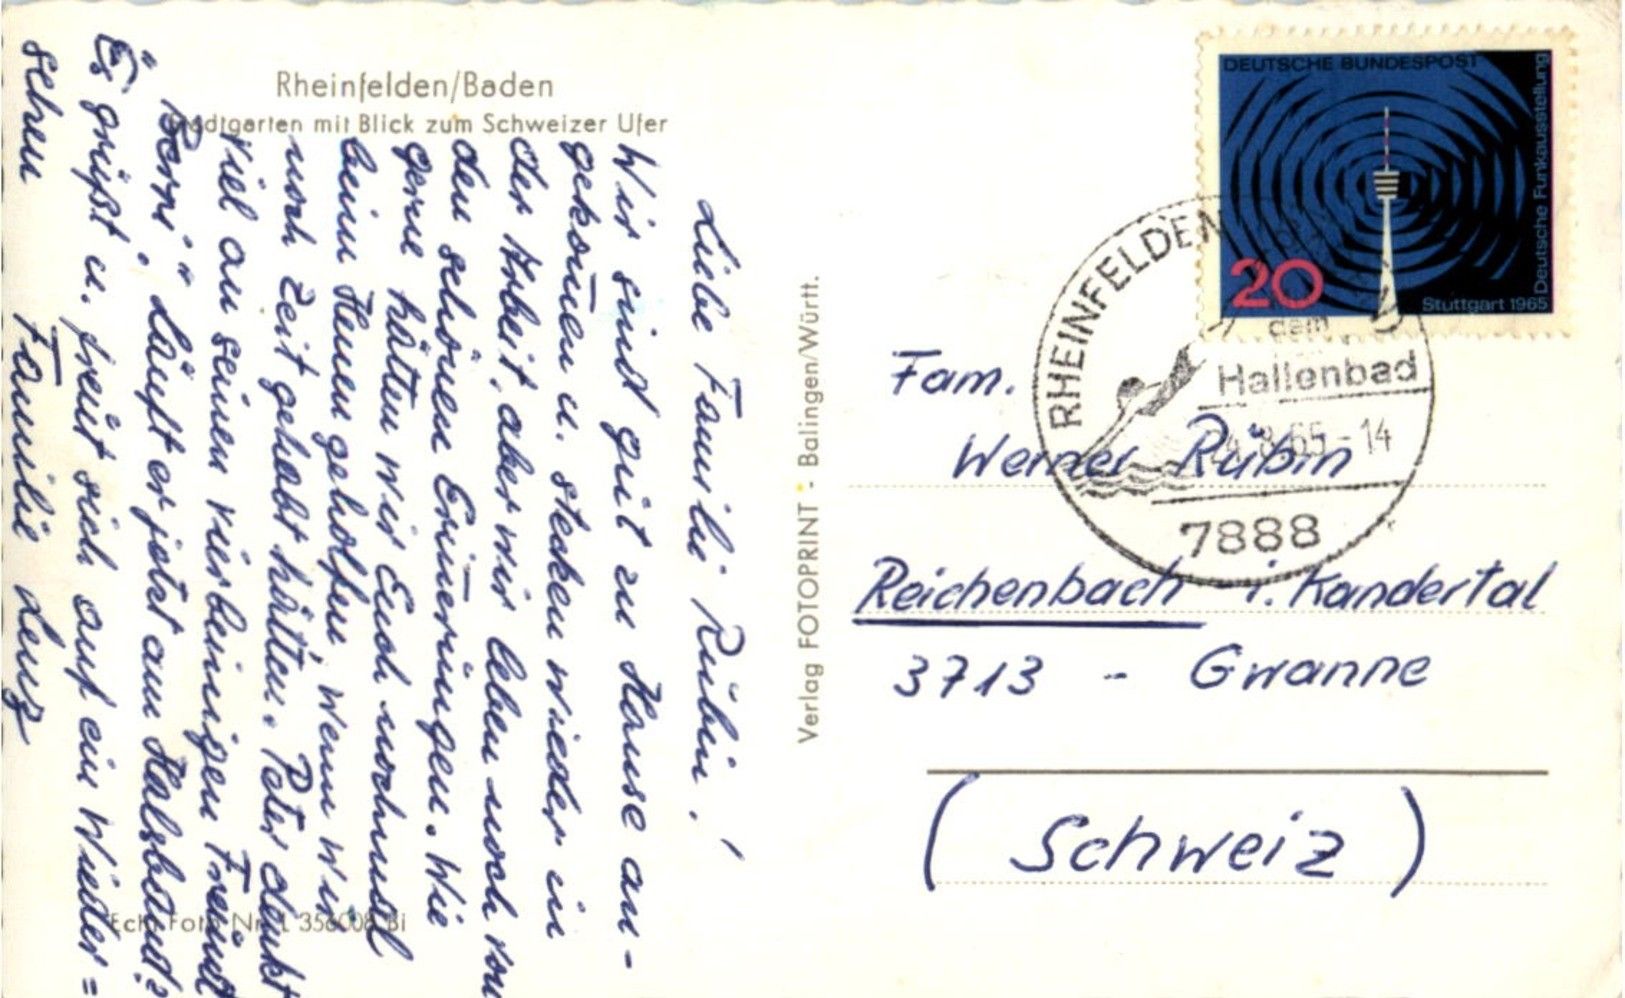 Rheinfelden/Baden
Stadtgarten mit Blick zum Schweizer Ufer
Liebe Familie Rübin!
Wir sind gut zu Hause an-
gekom̅en u. stecken wieder in
der Arbeit, aber wir leben noch von
den schönen Erin̅erungen. Wie
gerne hätten wir Euch nochmal
beim Heuen geholfen, wenn wir
noch Zeit gehabt hätten. Peter denkt
viel an seinen vierbeinigen Freund
"Berri". Läuft er jetzt am Halsband?
Es grüßt u. freut sich auf ein Wieder=
sehen Familie Lenz
Echt Foto Nr. L 356008 Bi
Verlag FOTOPRINT - Balingen/Württ.
DEUTSCHE BUNDESPOST
Deutsche Funkausstellung
Stuttgart 1965
20
RHEINFELDEN
dem
Hallenbad
24.8.65-14
7888
Fam.
Werner Rübin
Reichenbach i. Kandertal
3713 - Gwanne
(Schweiz)